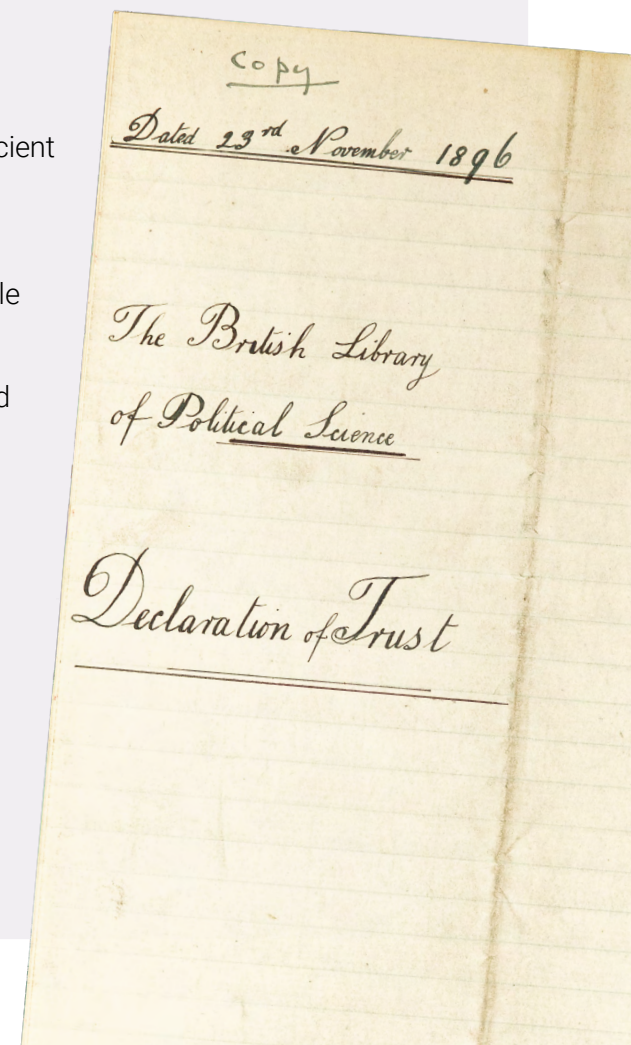 cient
le
d
Copy
Dated 23rd November 1896
The British Library
of Political Science
Declaration of Trust